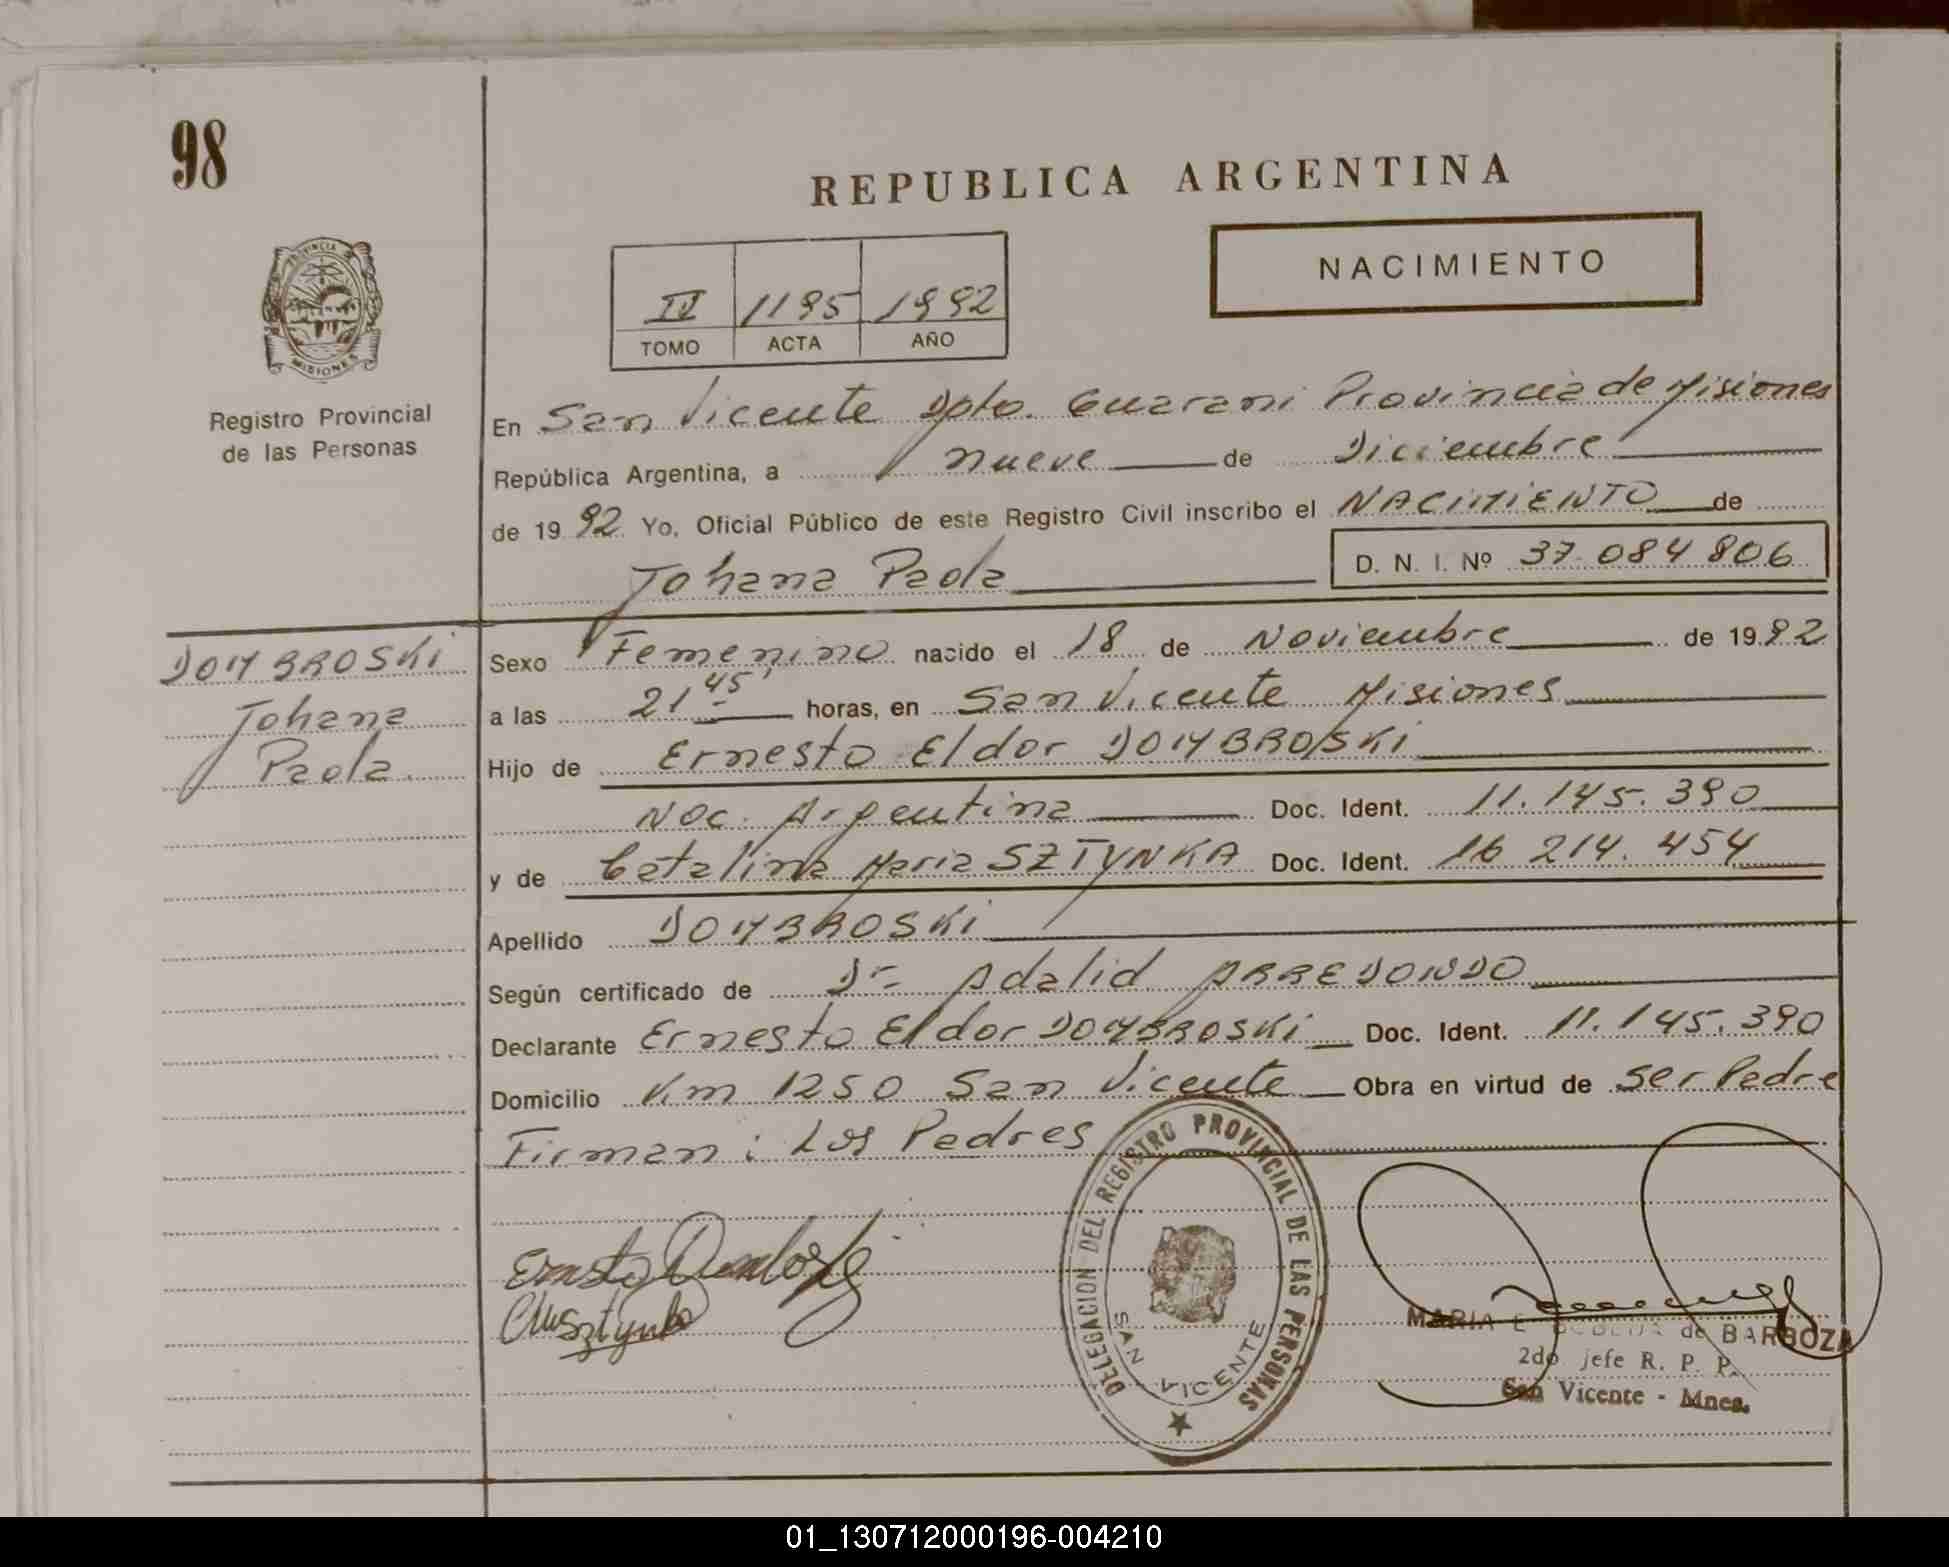 98
REPUBLICA ARGENTINA
NACIMIENTO
IV 1195 1992
TOMO ACTA AÑO
PROVINCIA
MISIONES
Registro Provincial
de las Personas
En San Vicente Dpto. Guarani Provincia de Misiones
República Argentina, a nueve de Diciembre
de 19 92 Yo, Oficial Público de este Registro Civil inscribo el NACIMIENTO de
Johana Paola D. N. I. Nº 37.084.806
DOMBROSKI
Johana
Paola
Sexo Femenino nacido el 18 de Noviembre de 19 92
a las 21 45 horas, en San Vicente Misiones
Hijo de Ernesto Eldor DOMBROSKI
Nac. Argentina Doc. Ident. 11.145.390
y de Catalina Maria SZTYNKA Doc. Ident. 16 214.454
Apellido DOMBROSKI
Según certificado de Dr. Adalid ARREDONDO
Declarante Ernesto Eldor DOMBROSKI Doc. Ident. 11.145.390
Domicilio Km 1250 San Vicente Obra en virtud de ser Padre
Firman: Los Padres
DELEGACION DEL REGISTRO PROVINCIAL DE LAS PERSONAS
SAN VICENTE
MARIA E de BARBOZA
2do jefe R. P. P.
San Vicente - Mnes.
01_130712000196-004210